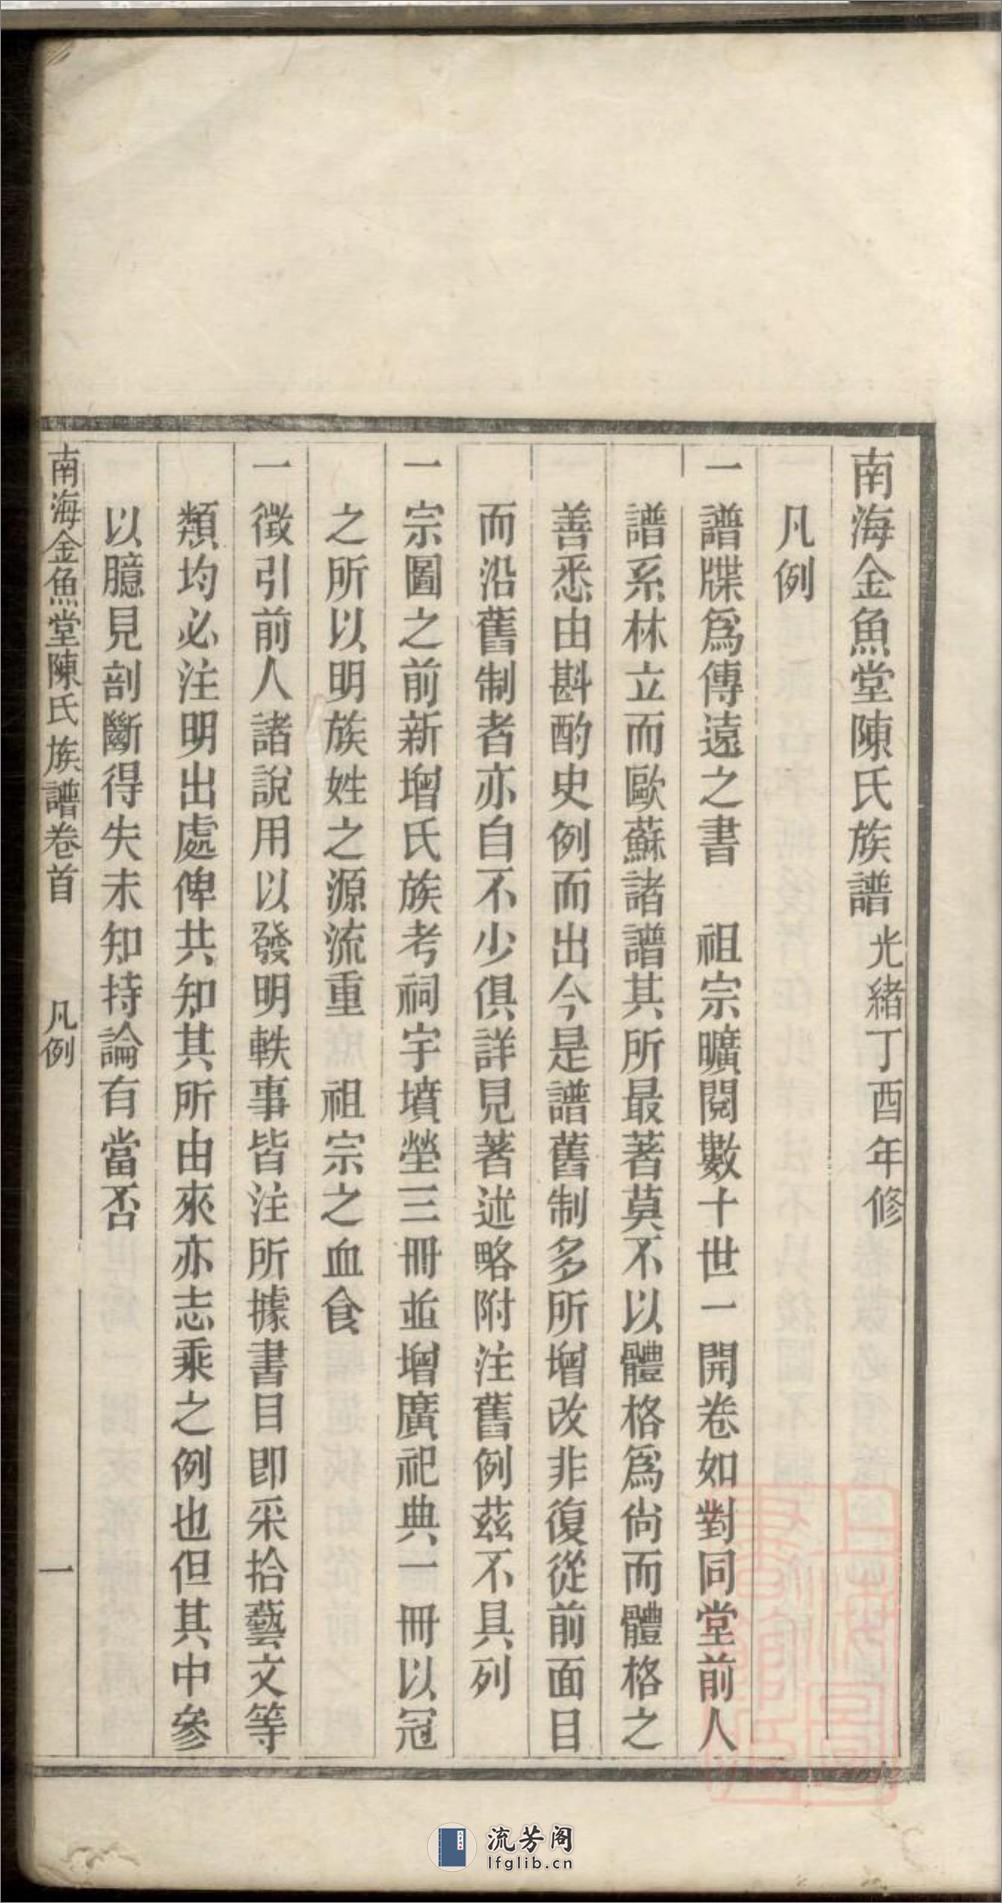 南海金魚堂陳氏族譜 光緒丁酉年修
凡例
一譜牒爲傳遠之書 祖宗曠閱數十世一開卷如對同堂前人
譜系林立而歐蘇諸譜其所最著莫不以體格爲尙而體格之
善悉由斟酌史例而出今是譜舊制多所增改非復從前面目
而沿舊制者亦自不少俱詳見著述略附注舊例茲不具列
一宗圖之前新增氏族考祠宇墳塋三冊並增廣祀典一冊以冠
之所以明族姓之源流重 祖宗之血食
一徵引前人諸說用以發明軼事皆注所據書目卽采拾藝文等
類均必注明出處俾共知其所由來亦志乘之例也但其中參
以臆見剖斷得失未知持論有當否
南海金魚堂陳氏族譜卷首 凡例 一
流芳阁
lfglib.cn